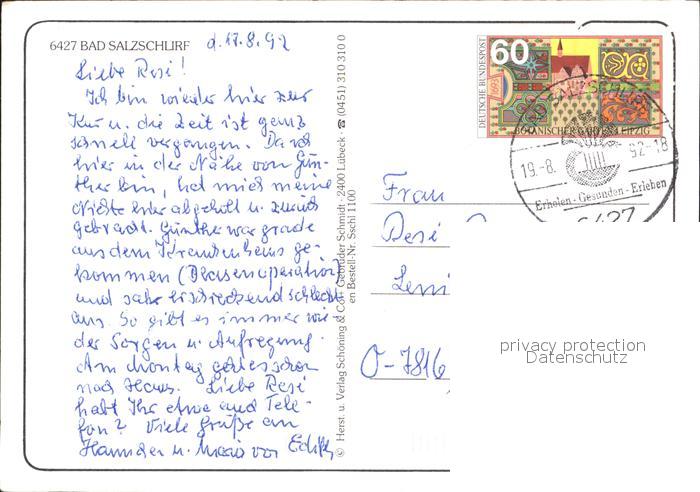 6427 BAD SALZSCHLIRF d. 17.8.92
Liebe Resi!
Ich bin wieder hier zur
Kur u. die Zeit ist ganz
schnell vergangen. Da ich
hier in der Nähe von Gün-
ther bin, hat mich meine
Nichte hier abgeholt u. zurück
gebracht. Günther war grade
aus dem Krankenhaus ge-
kommen (Blasenoperation)
und sah erschreckend schlecht
aus. So gibt es immer wie-
der Sorgen u. Aufregung.
Am Montag geht es schon
nach Haus. Liebe Resi
habt Ihr etwa auch Tele-
fon? Viele Grüße an
u. von Edith
© Herst. u. Verlag Schöning & Co + Gebrüder Schmidt · 2400 Lübeck · ☎ (0451) 310 310 0
en Bestell-Nr. Sschl 1100
DEUTSCHE BUNDESPOST
60
1693
BOTANISCHER GARTEN LEIPZIG
BAD SALZSCHLIRF
19.-8. 92-18
Erholen - Gesunden - Erleben
6427
Frau
Resi
O-7816
privacy protection
Datenschutz